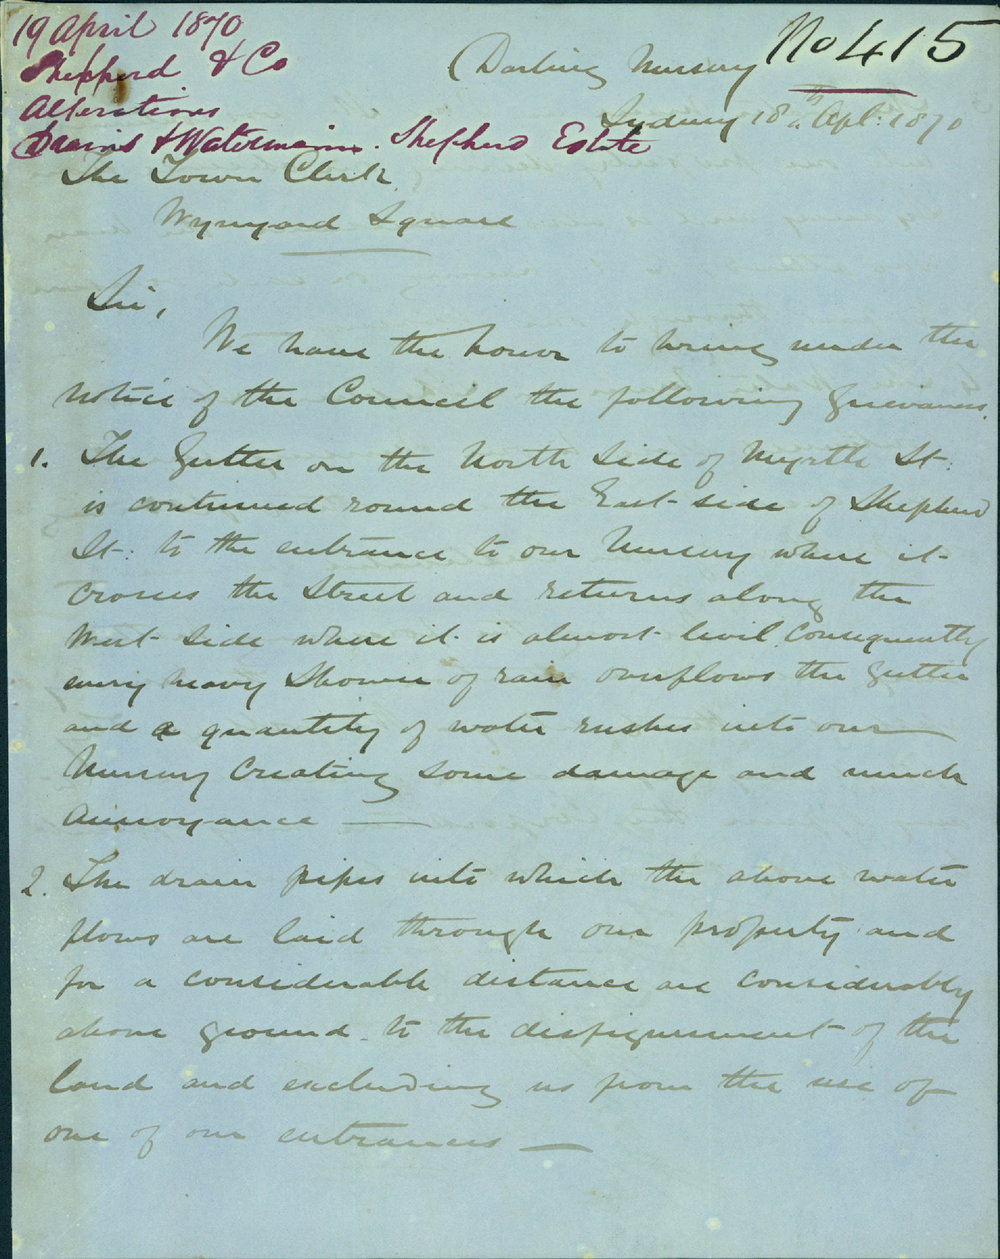 19 April 1870
Shepperd & Co
Alterations
Drains & Watermains. Shepherd Estate
No 415
(Darling Nursery
Sydney 18th Apl: 1870
The Town Clerk
Wynyard Square
Sir,
We have the honor to bring under the
notice of the Council the following grievances.
1. The Gutter on the North Side of Myrtle St.
is continued round the East side of Shepherd
St. to the entrance to our Nursery where it
crosses the Street and returns along the
West Side where it is almost level, Consequently
every heavy Shower of rain overflows the Gutter
and a quantity of water rushes into our
Nursery Creating Some damage and much
Annoyance —
2. The drain pipes into which the above water
flows are laid through our property and
for a considerable distance are considerably
above ground to the disfigurement of the
land and excluding us from the use of
one of our entrances —